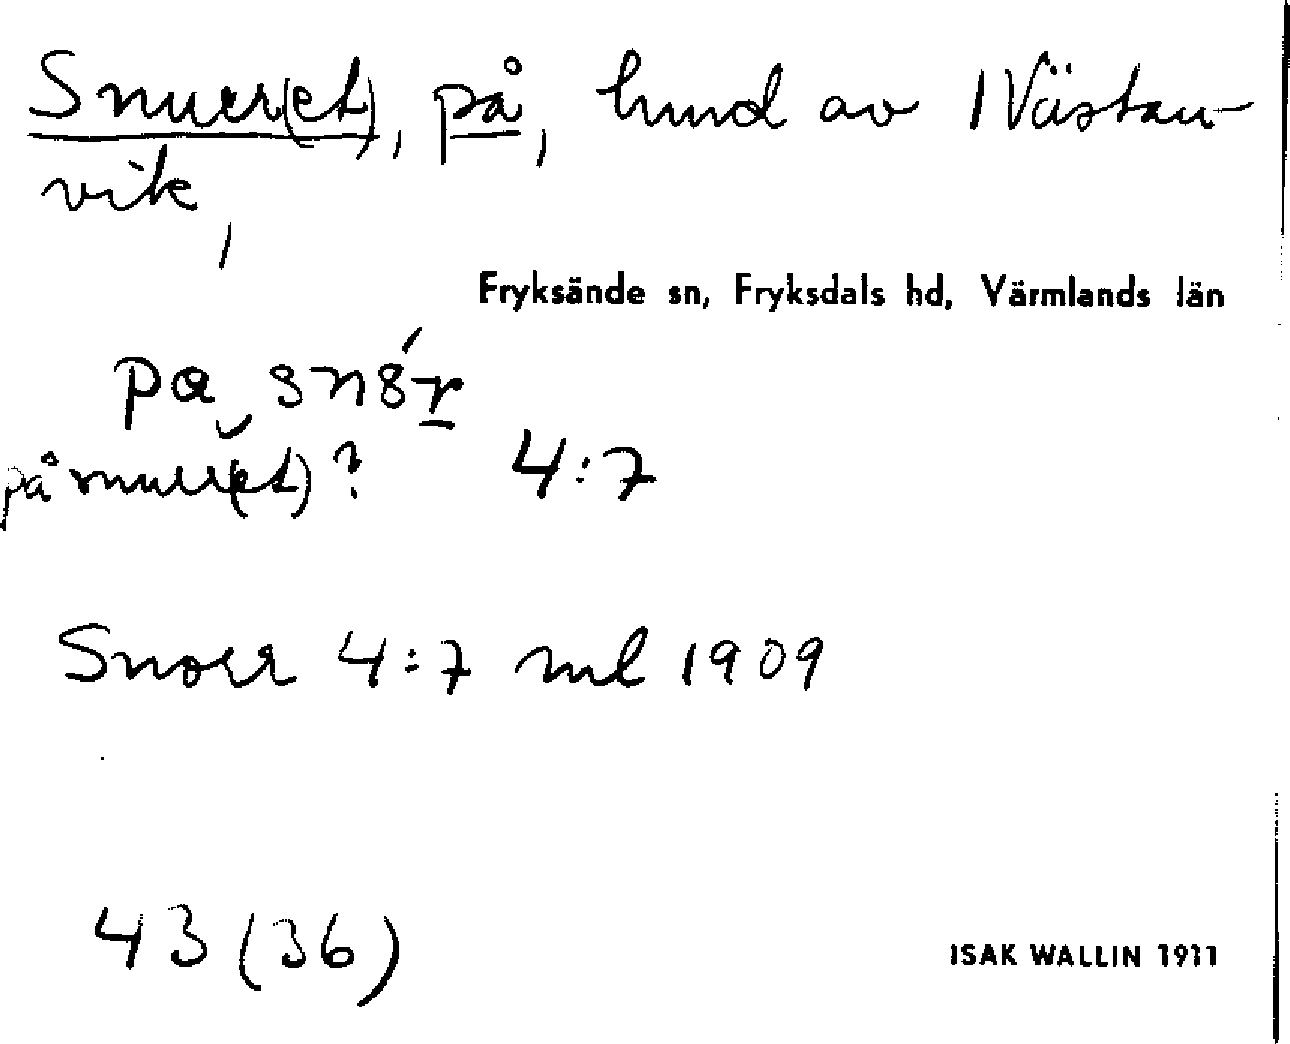 Snurr(et), på, hund av 1 Västan-
vik,
Fryksände sn, Fryksdals hd, Värmlands län
på snurr(et)? 4:7
Snorr 4:7 ml 1909
43 (36)
ISAK WALLIN 1911